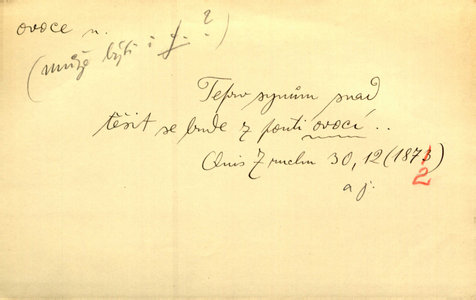 ovoce n.
(může býti i f. ?)
Teprv synům snad
těšit se bude z pouti ovocí . .
Z ruchu 30, 12 (1873)
2
a j.